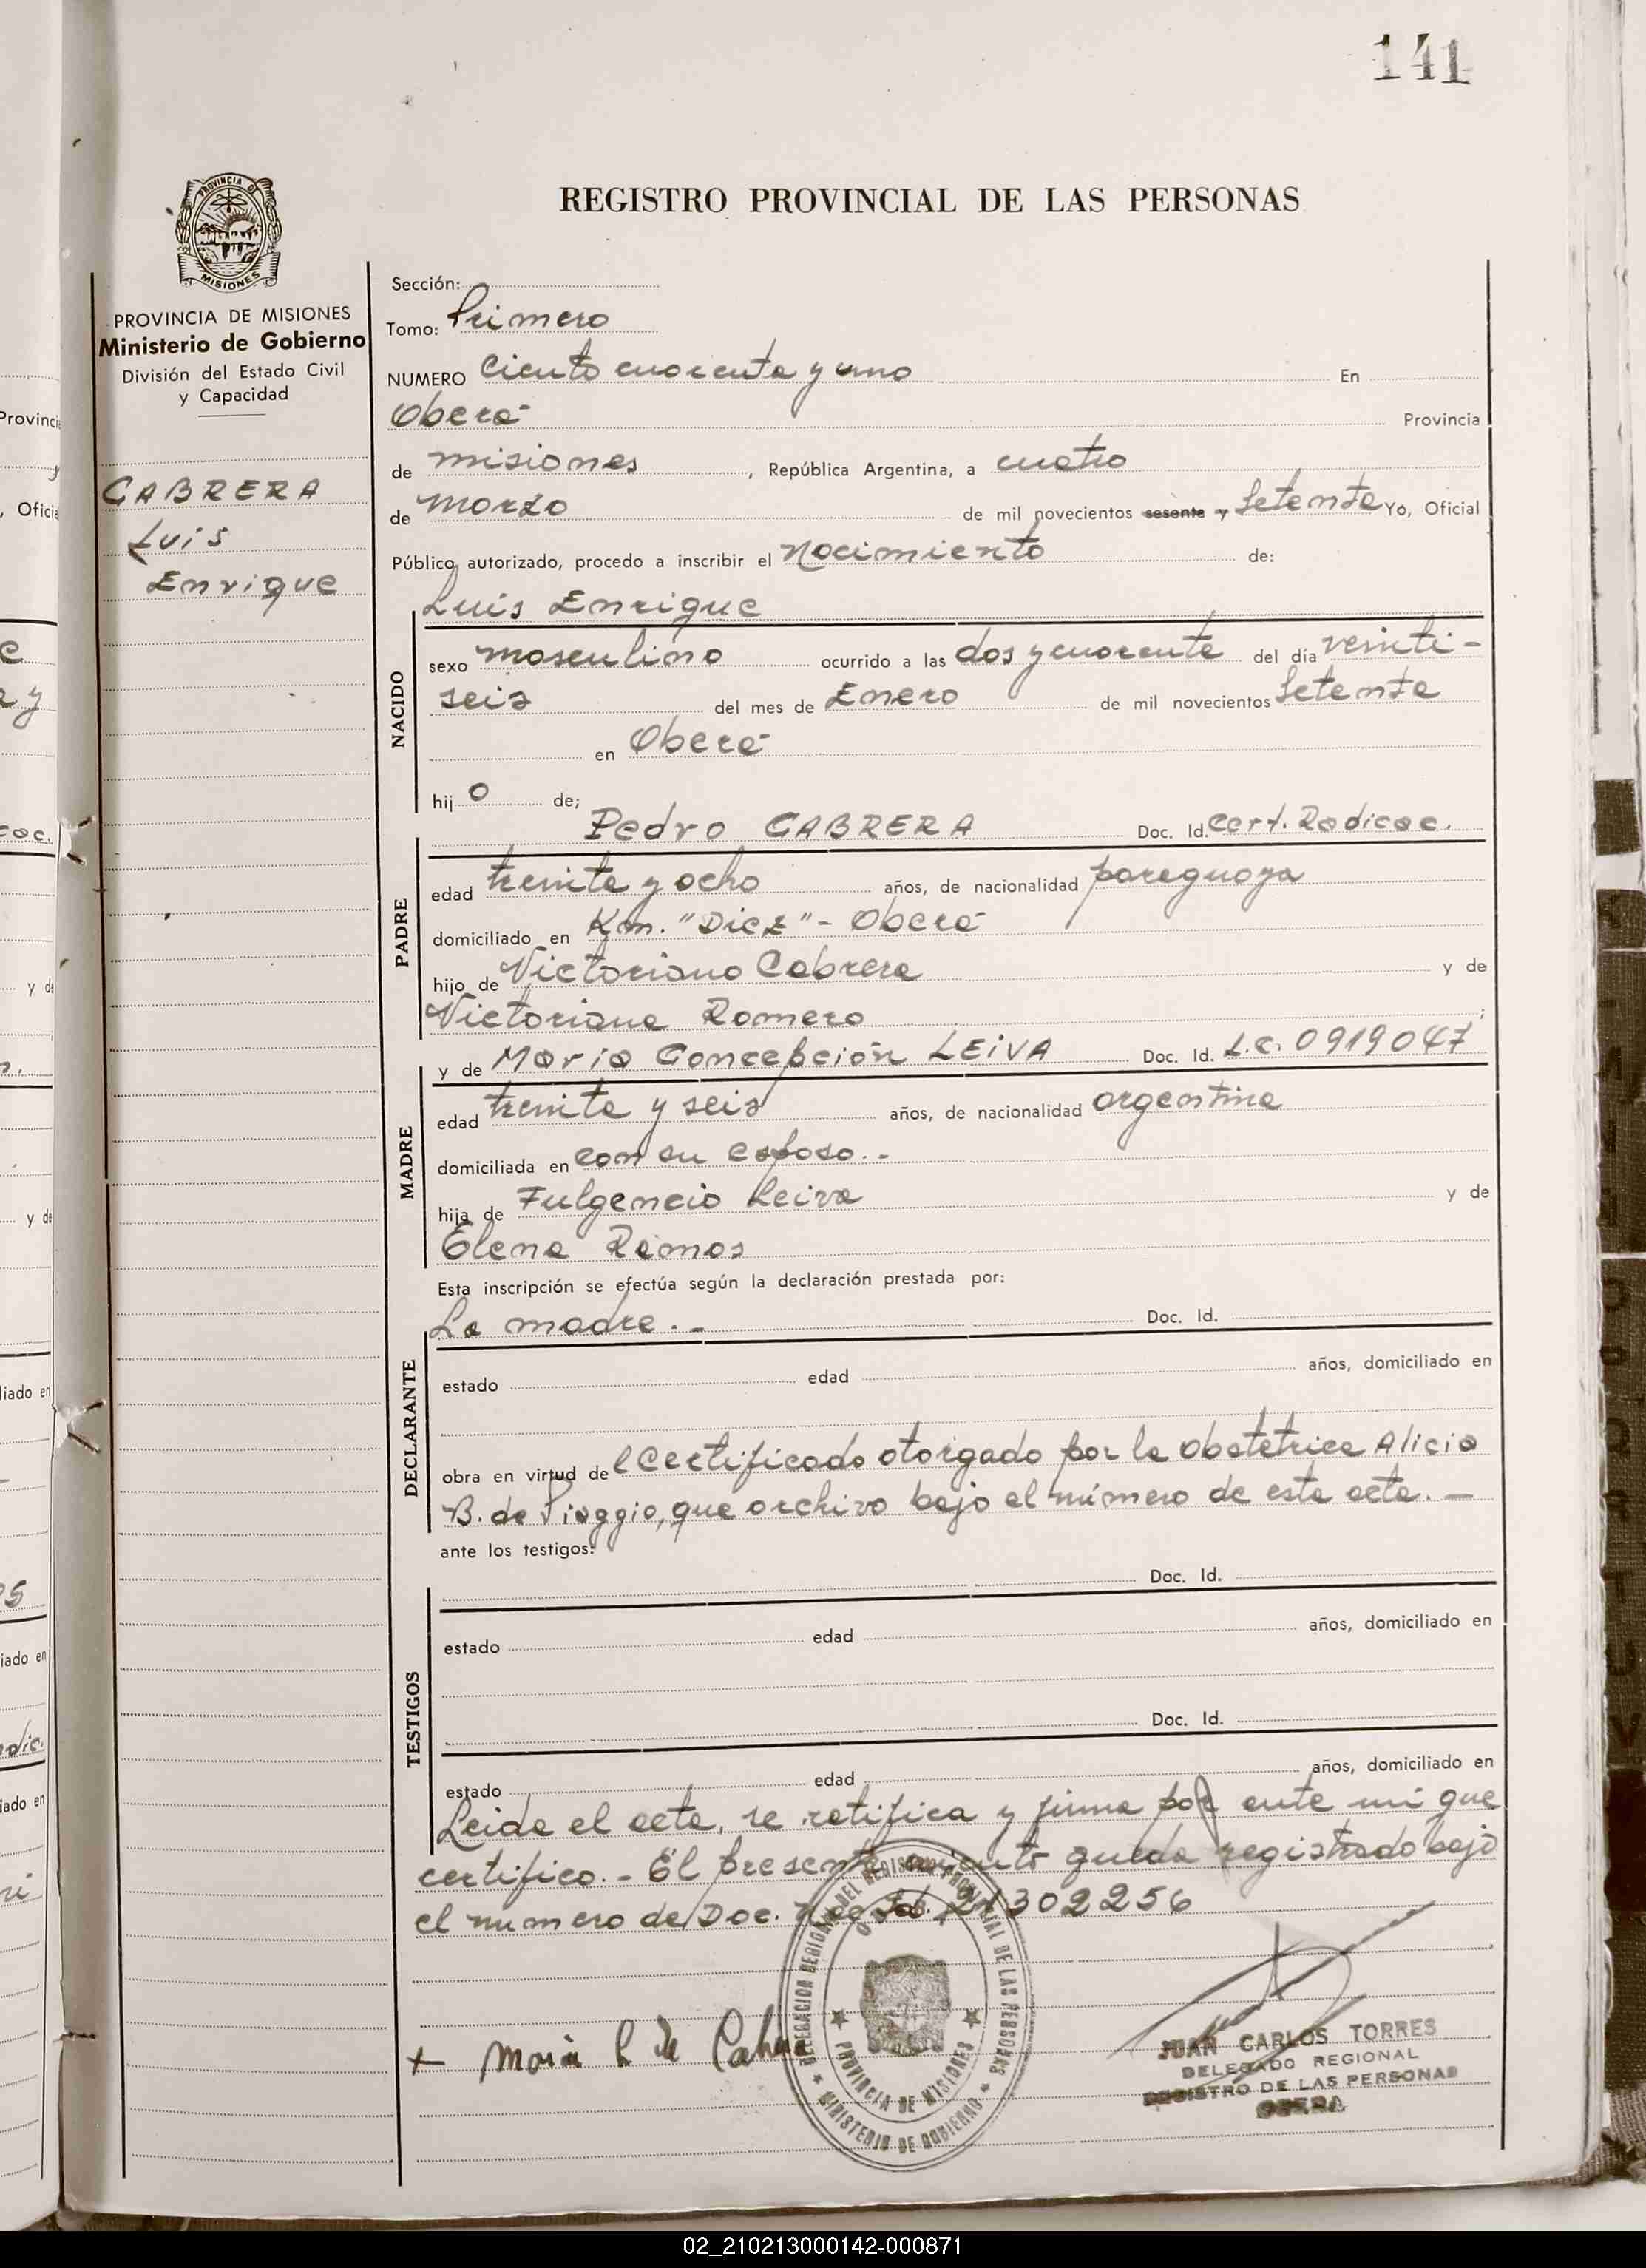 141
PROVINCIA DE
MISIONES
REGISTRO PROVINCIAL DE LAS PERSONAS
PROVINCIA DE MISIONES
Ministerio de Gobierno
División del Estado Civil
y Capacidad
CABRERA
Luis
Enrique
Sección:
Tomo: Primero
NUMERO Ciento cuarenta y uno En
Oberá Provincia
de misiones, República Argentina, a cuatro
de marzo de mil novecientos sesenta y Setenta Yo, Oficial
Público autorizado, procedo a inscribir el nacimiento de:
Luis Enrique
NACIDO
sexo masculino ocurrido a las dos y cuarenta del día veinti-
seis del mes de Enero de mil novecientos Setenta
en Oberá
hijo de;
Pedro CABRERA Doc. Id. Cert. Radicac.
PADRE
edad treinta y ocho años, de nacionalidad paraguaya
domiciliado en Km. "Diez"- Oberá
hijo de Victoriano Cabrera y de
Victoriana Romero;
y de María Concepción LEIVA Doc. Id. L.C. 0919047
MADRE
edad treinta y seis años, de nacionalidad argentina
domiciliada en con su esposo.-
hija de Fulgencio Leiva y de
Elena Ramos
Esta inscripción se efectúa según la declaración prestada por:
La madre.- Doc. Id.
DECLARANTE
estado edad años, domiciliado en
obra en virtud del Certificado otorgado por la obstétrica Alicia
B. de Piaggio, que archivo bajo el número de esta acta.—
ante los testigos:
Doc. Id.
TESTIGOS
estado edad años, domiciliado en
Doc. Id.
estado edad años, domiciliado en
Leida el acta, se ratifica y firma por ante mi que
certifico.- El presente asiento queda registrado bajo
el numero de Doc. Nac. Id. 21302256
DELEGACION REGIONAL DEL REGISTRO PROVINCIAL DE LAS PERSONAS
PROVINCIA DE MISIONES
MINISTERIO DE GOBIERNO
+ Maria L de Cabrera
JUAN CARLOS TORRES
DELEGADO REGIONAL
REGISTRO DE LAS PERSONAS
OBERA
02_210213000142-000871